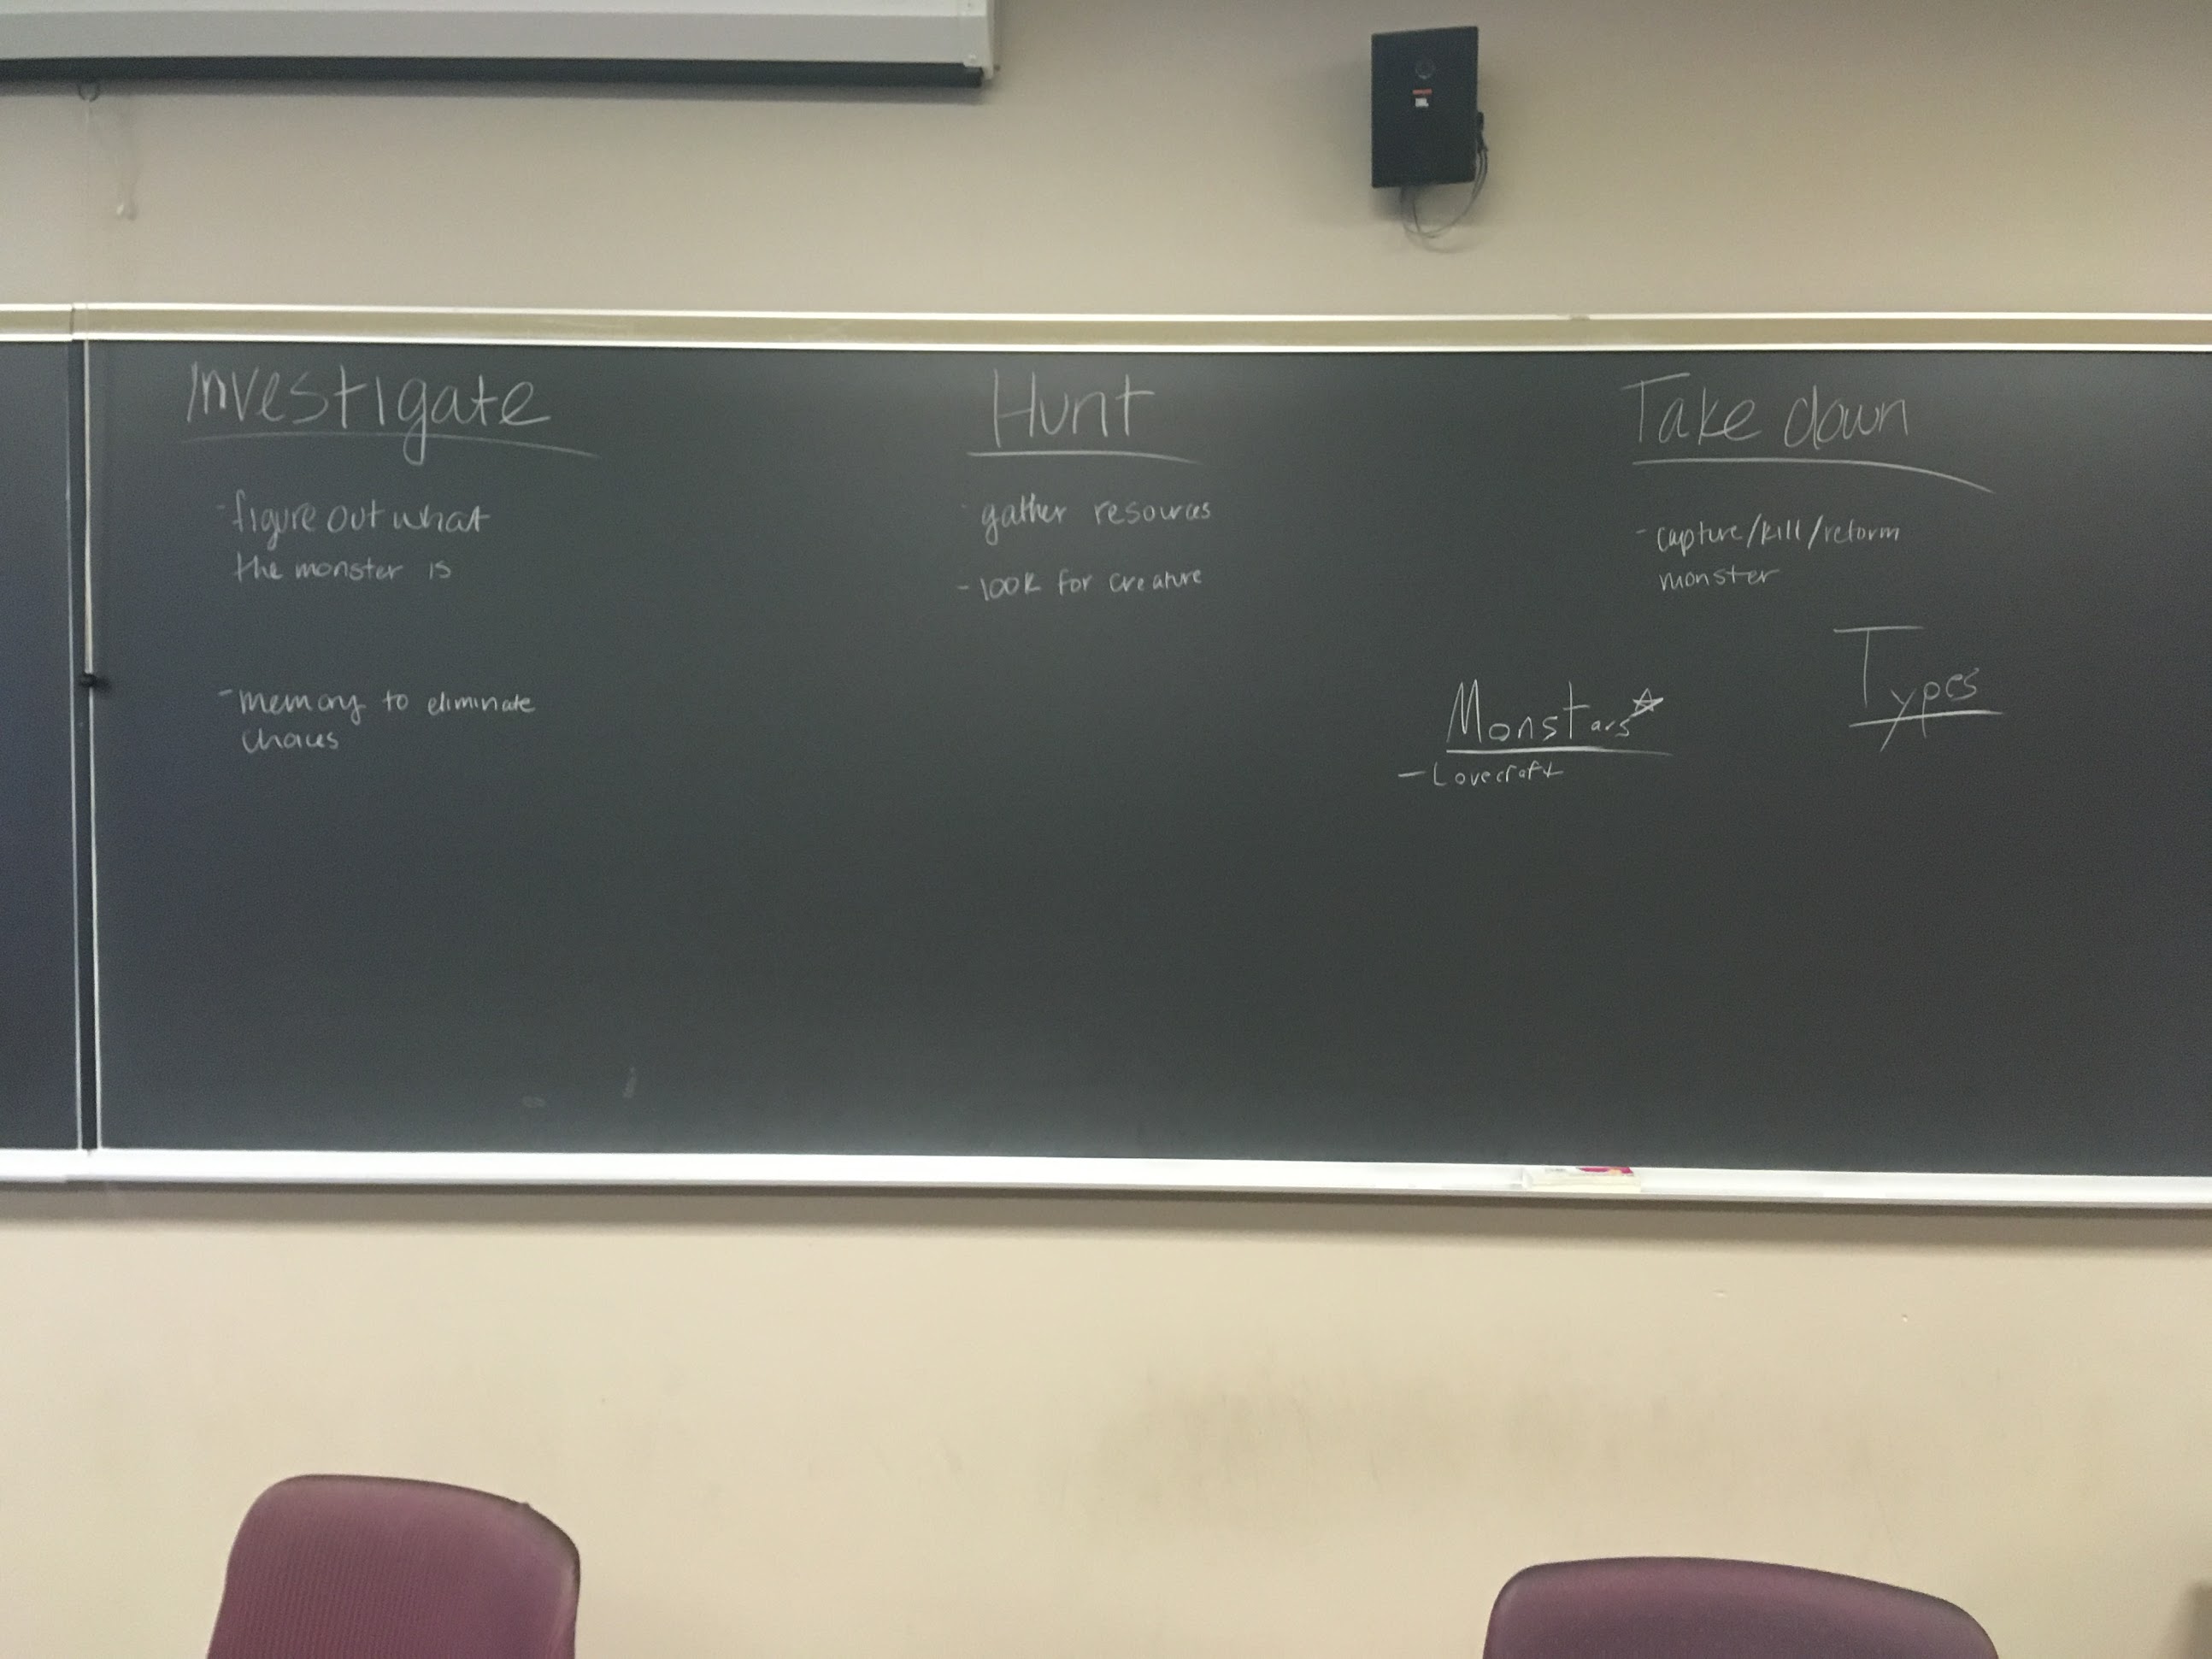 Investigate
- figure out what
the monster is
- memory to eliminate
chaos
Hunt
- gather resources
- look for creature
Take down
- capture/kill/reform
monster
Monstars
- Lovecraft
Types